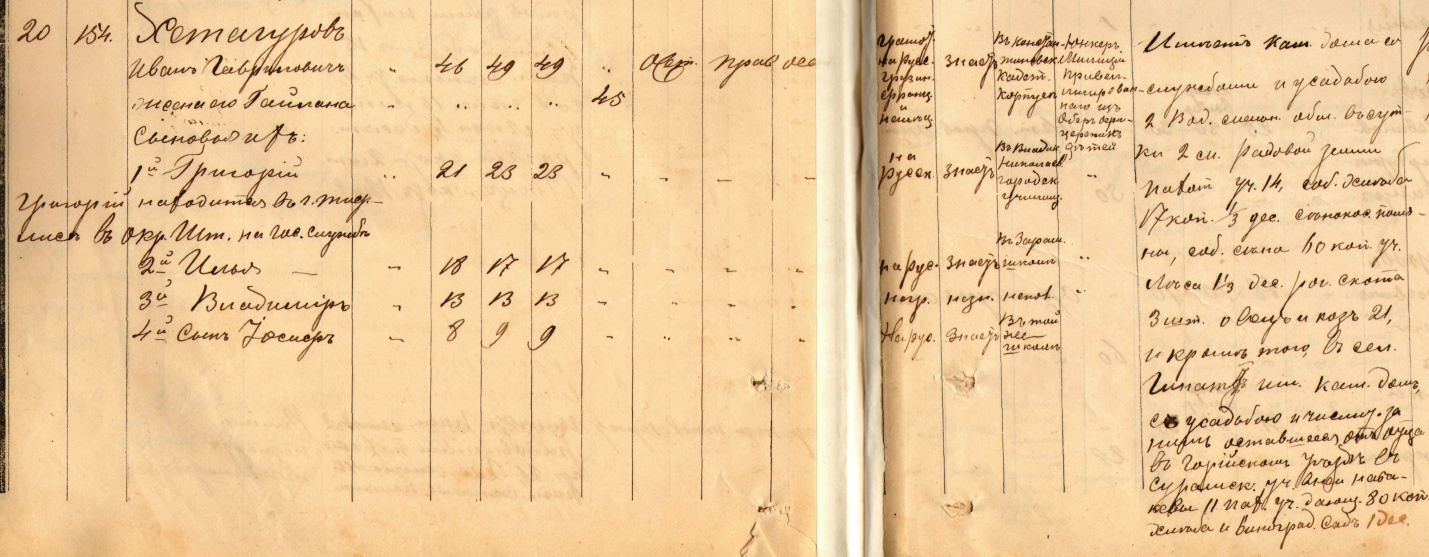 20 154. Хетагуровъ
Иванъ Гавриловичъ „ 46 49 49 „ осет. прав осе
жена его Гайлана „ „ „ „ 45
Сыновья ихъ:
1й Григорій „ 21 23 23 „ „ „ „
Григорій находится въ г. Тиф-
лисѣ въ Окр. Шт. на гос. службѣ
2й Илья — „ 18 17 17 „ „ „ „
3й Владиміръ „ 13 13 13 „ „ „ „
4й Сынъ Іосифъ „ 8 9 9 „ „ „ „
грамот.
на русс.
грузин.
франц.
й
немец.
знаетъ
Въ констан-
тиновск.
кадет.
корпусѣ
Юнкеръ
Милиціи
Привел-
лигирован-
наго изъ
Оберъ офи-
церскихъ
дѣтей
на
русск.
знаетъ
Въ Владик.
Николаев.
городск
училищ.
„
на рус.
знаетъ
Въ Зарам.
школѣ
„
негр.
незн.
„
На рус.
знаетъ
Въ той
же
школѣ
Имѣетъ кам. дома со
службами и усадьбою
2 вод. мельн.
ки 2 см. радовой земли
пахот уч. 14, соб. хлѣба
17 коп. 1/3 дес. сѣнокос.
ны, соб. сѣна 60 коп. уч.
лѣса 1/3 дес. рог. скота
3 шт. овецъ и козъ 21,
и кромѣ того, въ сел.
им. кам. домъ,
съ усадьбою и числит. за
нимъ оставшееся отъ отца
въ Горійскомъ уѣздѣ въ
Сурамск. уч.
11 пах. уч. дающ. 80 коп.
хлѣба и виноград. садъ 1 дес.